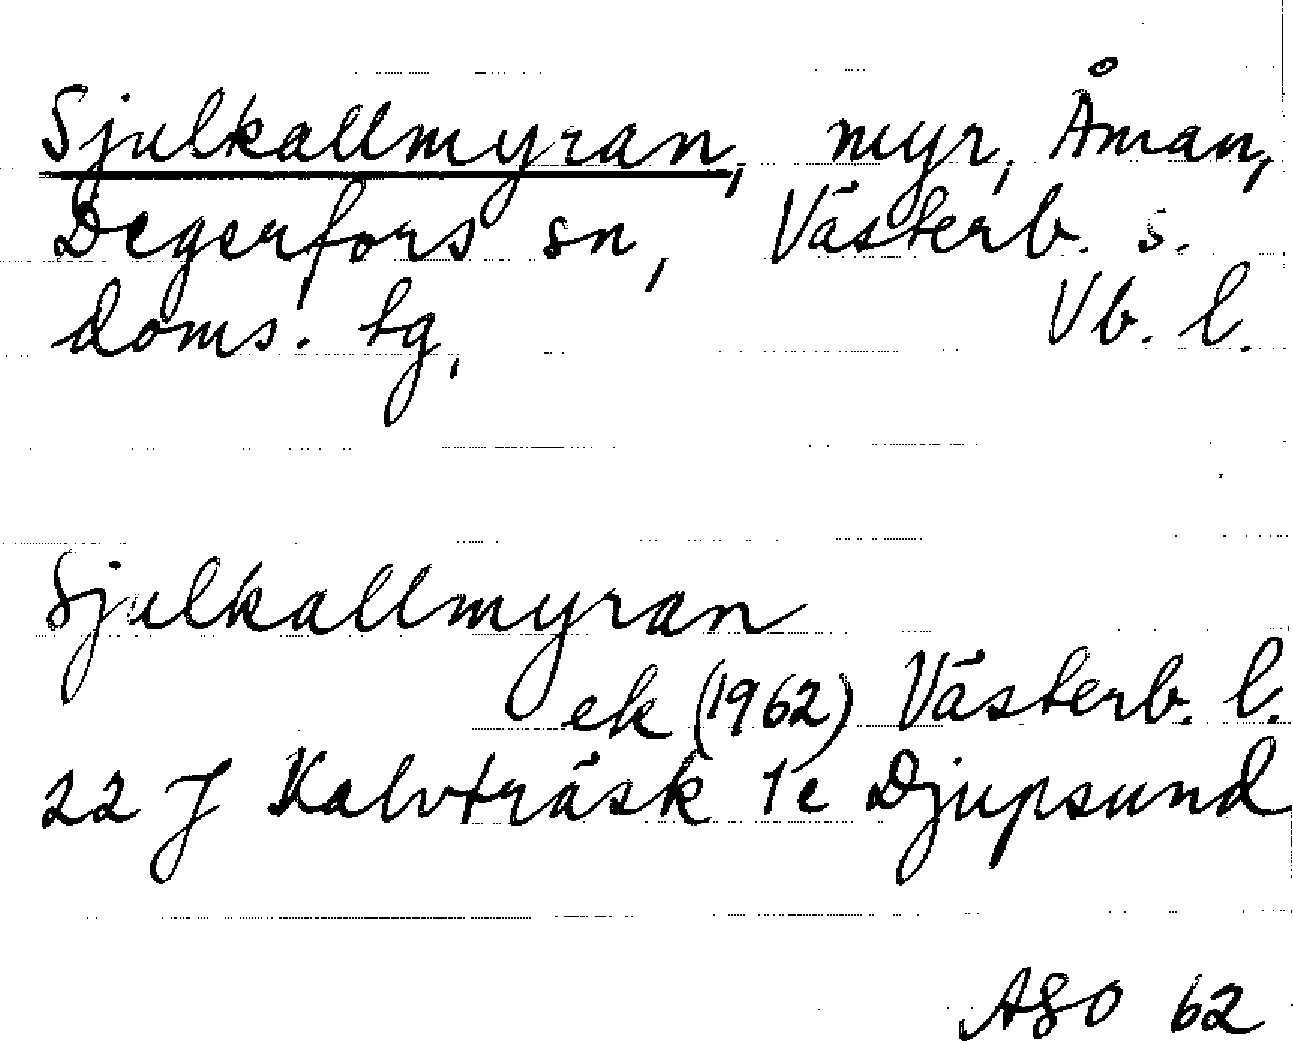 Sjulkallmyran, myr, Åman,
Degerfors sn, Västerb. s.
doms. tg, Vb. l.
Sjulkallmyran
ek (1962) Västerb. l.
22 J Kalvträsk 1e Djupsund
ASO 62